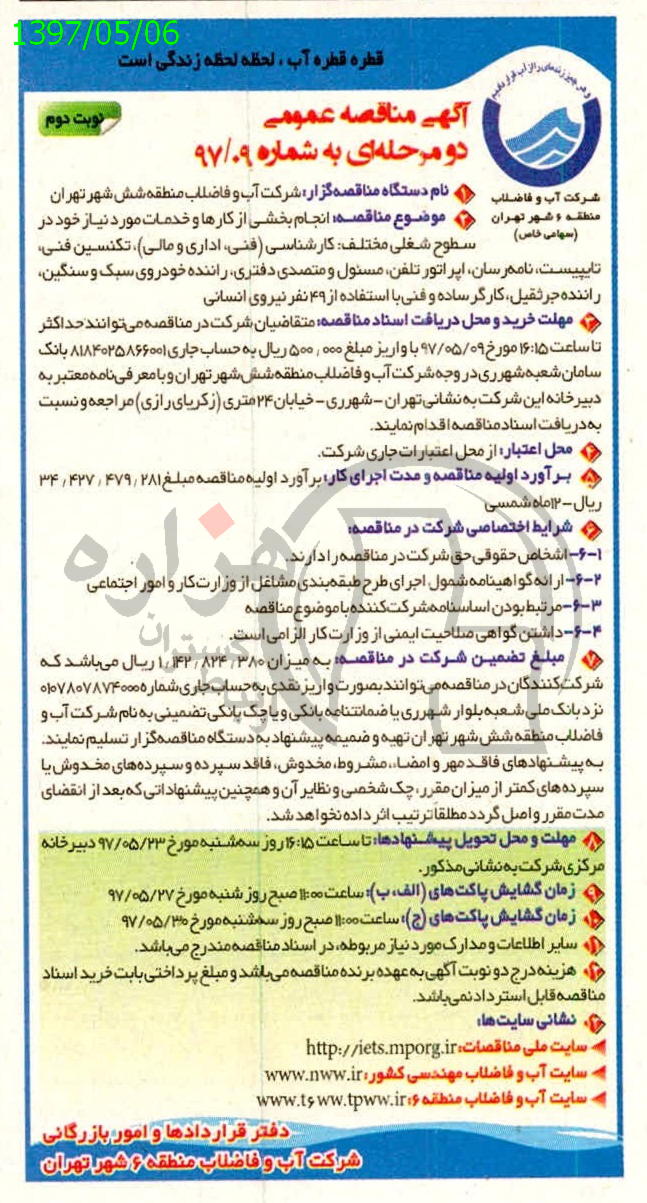 1397/05/06
قطره قطره آب ، لحظه لحظه زندگی است
و هر چیز زنده‌ای را از آب قرار دادیم
آگهی مناقصه عمومی
نوبت دوم
دو مرحله‌ای به شماره ۹۷/۰۹
شرکت آب و فاضلاب
منطقه ۶ شهر تهران
(سهامی خاص)
۱ نام دستگاه مناقصه‌گزار: شرکت آب و فاضلاب منطقه شش شهر تهران
۲ موضوع مناقصه: انجام بخشی از کارها و خدمات مورد نیاز خود در
سطوح شغلی مختلف: کارشناسی (فنی، اداری و مالی)، تکنسین فنی،
تایپیست، نامه‌رسان، اپراتور تلفن، مسئول و متصدی دفتری، راننده خودروی سبک و سنگین،
راننده جرثقیل، کارگر ساده و فنی با استفاده از ۴۹ نفر نیروی انسانی
۳ مهلت خرید و محل دریافت اسناد مناقصه: متقاضیان شرکت در مناقصه می‌توانند حداکثر
تا ساعت ۱۶:۱۵ مورخ ۹۷/۰۵/۰۹ با واریز مبلغ ۵۰۰,۰۰۰ ریال به حساب جاری ۸۱۸۴۰۲۵۸۶۶۰۰۱ بانک
سامان شعبه شهرری در وجه شرکت آب و فاضلاب منطقه شش شهر تهران و با معرفی نامه معتبر به
دبیرخانه این شرکت به نشانی تهران – شهرری – خیابان ۲۴ متری (زکریای رازی) مراجعه و نسبت
به دریافت اسناد مناقصه اقدام نمایند.
۴ محل اعتبار: از محل اعتبارات جاری شرکت.
۵ برآورد اولیه مناقصه و مدت اجرای کار: برآورد اولیه مناقصه مبلغ ۳۴,۴۲۷,۴۷۹,۲۸۱
ریال – ۱۲ماه شمسی
۶ شرایط اختصاصی شرکت در مناقصه:
۶-۱- اشخاص حقوقی حق شرکت در مناقصه را دارند.
۶-۲- ارائه گواهینامه شمول اجرای طرح طبقه‌بندی مشاغل از وزارت کار و امور اجتماعی
۶-۳- مرتبط بودن اساسنامه شرکت‌کننده با موضوع مناقصه
۶-۴- داشتن گواهی صلاحیت ایمنی از وزارت کار الزامی است.
۷ مبلغ تضمین شرکت در مناقصه: به میزان ۱,۱۴۲,۸۲۴,۳۸۰ ریال می‌باشد که
شرکت‌کنندگان در مناقصه می‌توانند بصورت واریز نقدی به حساب جاری شماره ۰۱۰۷۸۰۷۸۷۴۰۰۰
نزد بانک ملی شعبه بلوار شهرری یا ضمانتنامه بانکی و یا چک بانکی تضمینی به نام شرکت آب و
فاضلاب منطقه شش شهر تهران تهیه و ضمیمه پیشنهاد به دستگاه مناقصه‌گزار تسلیم نمایند.
به پیشنهادهای فاقد مهر و امضاء، مشروط، مخدوش، فاقد سپرده و سپرده‌های مخدوش یا
سپرده‌های کمتر از میزان مقرر، چک شخصی و نظایر آن و همچنین پیشنهاداتی که بعد از انقضای
مدت مقرر واصل گردد مطلقاً ترتیب اثر داده نخواهد شد.
۸ مهلت و محل تحویل پیشنهادها: تا ساعت ۱۶:۱۵ روز سه‌شنبه مورخ ۹۷/۰۵/۲۳ دبیرخانه
مرکزی شرکت به نشانی مذکور.
۹ زمان گشایش پاکت‌های (الف، ب): ساعت ۱۱:۰۰ صبح روز شنبه مورخ ۹۷/۰۵/۲۷
۱۰ زمان گشایش پاکت‌های (ج): ساعت ۱۱:۰۰ صبح روز سه‌شنبه مورخ ۹۷/۰۵/۳۰
۱۱ سایر اطلاعات و مدارک مورد نیاز مربوطه، در اسناد مناقصه مندرج می‌باشد.
۱۲ هزینه درج دو نوبت آگهی به عهده برنده مناقصه می‌باشد و مبلغ پرداختی بابت خرید اسناد
مناقصه قابل استرداد نمی‌باشد.
۱۳ نشانی سایت‌ها:
سایت ملی مناقصات: http://iets.mporg.ir
سایت آب و فاضلاب مهندسی کشور: www.nww.ir
سایت آب و فاضلاب منطقه ۶: www.t6ww.tpww.ir
دفتر قراردادها و امور بازرگانی
شرکت آب و فاضلاب منطقه ۶ شهر تهران